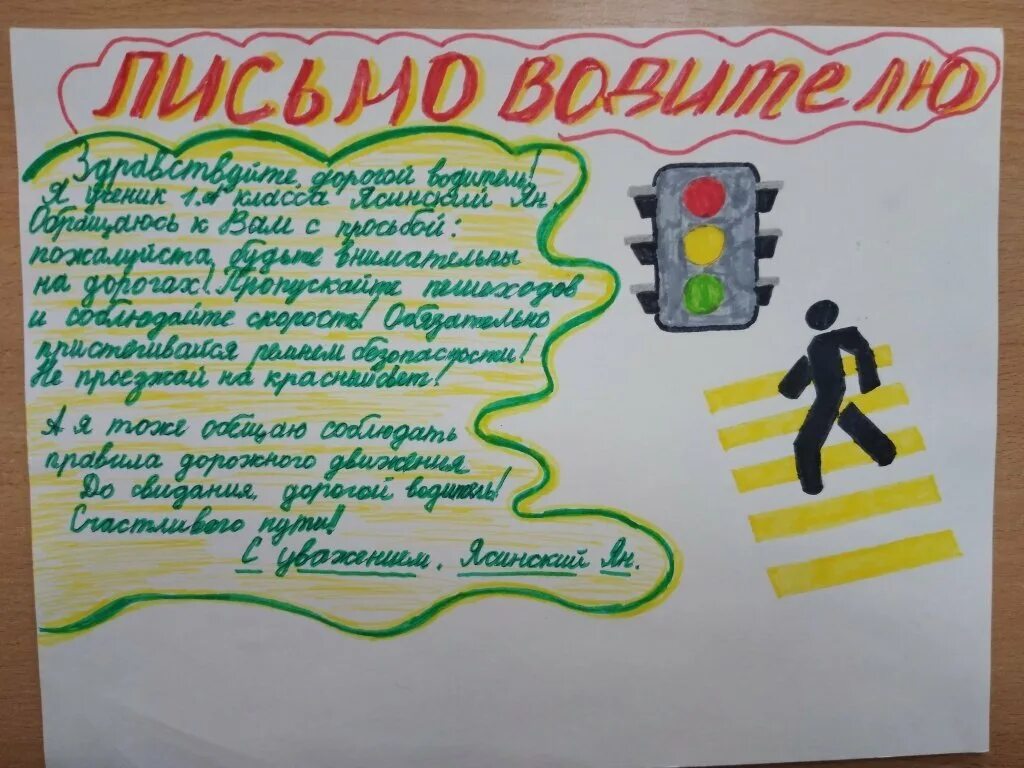 ПИСЬМО ВОДИТЕЛЮ
Здравствуйте, дорогой водитель!
Я ученик 1 "А" класса Ясинский Ян.
Обращаюсь к Вам с просьбой:
пожалуйста, будьте внимательны
на дорогах! Пропускайте пешеходов
и соблюдайте скорость! Обязательно
пристегивайся ремнем безопасности!
Не проезжай на красный свет!
А я тоже обещаю соблюдать
правила дорожного движения
До свидания, дорогой водитель!
Счастливого пути!!
С уважением, Ясинский Ян.